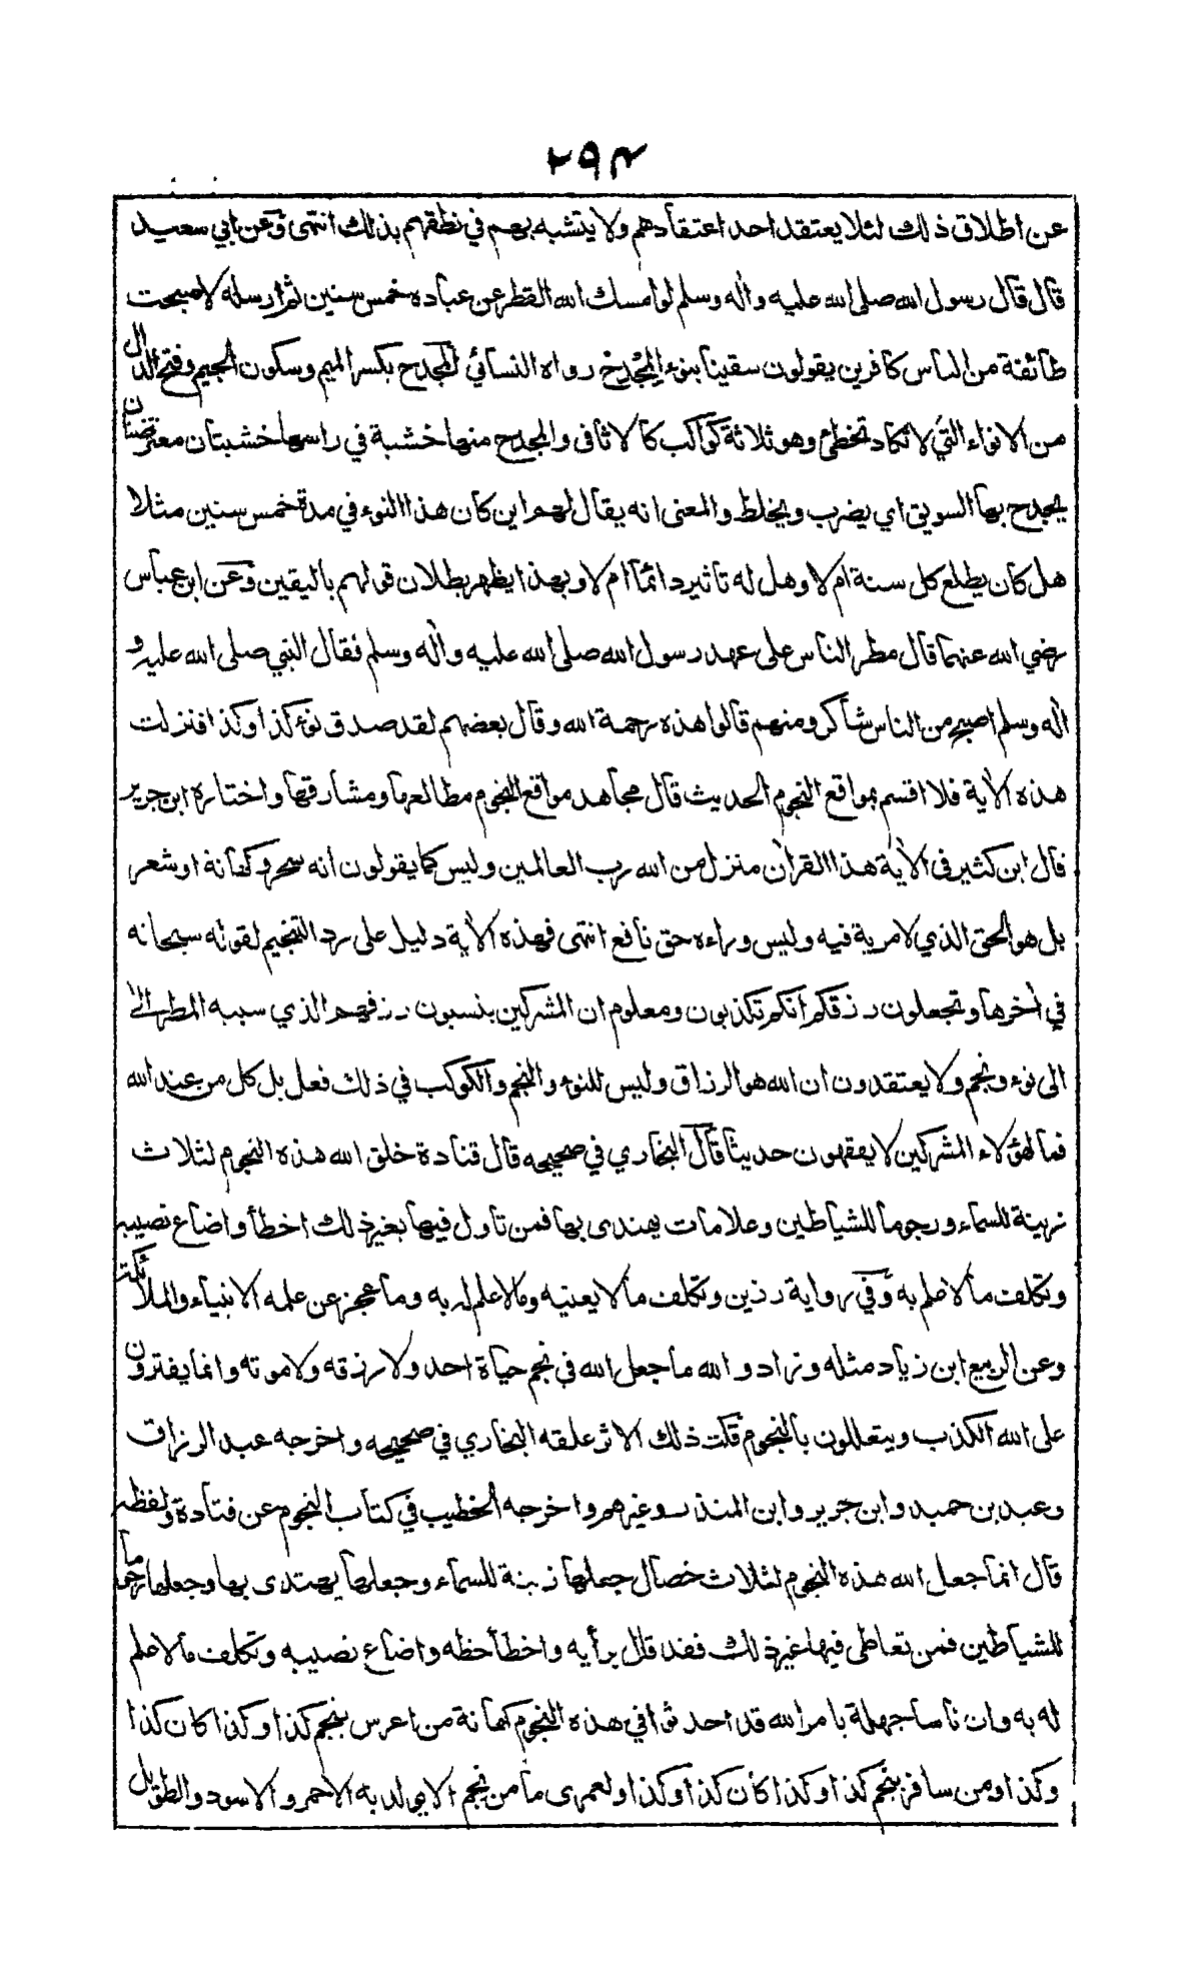 ٢٩٤
عن اطلاق ذلك لئلا يعتقد احد اعتقادهم ولا يتشبه بهم في نطقهم بذلك انتهى وعن ابي سعيد
قال قال رسول الله صلى الله عليه واله وسلم لو امسك الله القطر عن عباده خمس سنين ثم ارسله لاصبحت
طائفة من الناس كافرين يقولون سقينا بنوء المجدح رواه النسائي المجدح بكسر الميم وسكون الجيم وفتح الدال
من الانواء التي لا تكاد تخطئ وهو ثلاثة كواكب كالاثافى والمجدح منها خشبة في راسها خشبتان معترضتان
يجدح بها السويق اي يضرب ويخلط والمعنى انه يقال لهم اين كان هذا النوء في مدة خمس سنين مثلا
هل كان يطلع كل سنة ام لا وهل له تاثير دائما ام لا وبهذا يظهر بطلان قولهم باليقين وعن ابن عباس
رضي الله عنهما قال مطر الناس على عهد رسول الله صلى الله عليه واله وسلم فقال النبي صلى الله عليه و
اله وسلم اصبح من الناس شاكر ومنهم قالوا هذه رحمة الله وقال بعضهم لقد صدق نوء كذا وكذا فنزلت
هذه الآية فلا اقسم بمواقع النجوم الحديث قال مجاهد مواقع النجوم مطالعها ومشارقها واختاره ابن جرير
قال ابن كثير في الآية هذا القران منزل من الله رب العالمين وليس كما يقولون انه سحر وكهانة او شعر
بل هو الحق الذي لا مرية فيه وليس وراءه حق نافع انتهى فهذه الآية دليل على رد التنجيم لقوله سبحانه
في اخرها وتجعلون رزقكم انكم تكذبون ومعلوم ان المشركين ينسبون رزقهم الذي سببه المطر الى
الى نوء ونجم ولا يعتقدون ان الله هو الرزاق وليس للنوء والنجم والكوكب في ذلك فعل بل كل من عند الله
فما لهؤلاء المشركين لا يفقهون حديثا قال البخاري في صحيحه قال قتادة خلق الله هذه النجوم لثلاث
زينة للسماء ورجوما للشياطين وعلامات يهتدى بها فمن تاول فيها بغير ذلك اخطأ واضاع نصيبه
وتكلف ما لا علم به وفي رواية رزين وتكلف ما لا يعنيه وما لا علم له به وما عجز عن علمه الانبياء والملائكة
وعن الربيع ابن زياد مثله وزاد والله ما جعل الله في نجم حياة احد ولا رزقه ولا موته وانما يفترون
على الله الكذب ويتعللون بالنجوم قلت ذلك الاثر علقه البخاري في صحيحه واخرجه عبد الرزاق
وعبد بن حميد وابن جرير وابن المنذر وغيرهم واخرجه الخطيب في كتاب النجوم عن قتادة ولفظه
قال انما جعل الله هذه النجوم لثلاث خصال جعلها زينة للسماء وجعلها يهتدى بها وجعلها رجوما
للشياطين فمن تعاطى فيها غير ذلك فقد قال برأيه واخطأ حظه واضاع نصيبه وتكلف ما لا علم
له به وان ناسا جهلة بامر الله قد احدثوا في هذه النجوم كهانة من اعرس بنجم كذا وكذا كان كذا
وكذا ومن سافر بنجم كذا وكذا كان كذا وكذا ولعمرى ما من نجم الا يولد به الاحمر والاسود والطويل